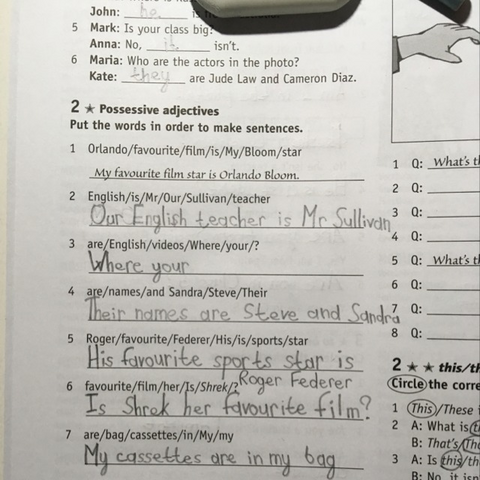 John: he is
5 Mark: Is your class big?
Anna: No, it isn't.
6 Maria: Who are the actors in the photo?
Kate: they are Jude Law and Cameron Diaz.
2 ★ Possessive adjectives
Put the words in order to make sentences.
1 Orlando/favourite/film/is/My/Bloom/star
My favourite film star is Orlando Bloom.
2 English/is/Mr/Our/Sullivan/teacher
Our English teacher is Mr Sullivan
3 are/English/videos/Where/your/?
Where your
4 are/names/and Sandra/Steve/Their
Their names are Steve and Sandra
5 Roger/favourite/Federer/His/is/sports/star
His favourite sports star is
Roger Federer
6 favourite/film/her/Is/Shrek/?
Is Shrek her favourite film?
7 are/bag/cassettes/in/My/my
My cassettes are in my bag
1 Q: What's th
2 Q:
3 Q:
4 Q:
5 Q: What's th
6 Q:
7 Q:
8 Q:
2 ★ ★ this/th
Circle the corre
1 This/These i
2 A: What is t
B: That's/The
3 A: Is this/th
B: No, it isn